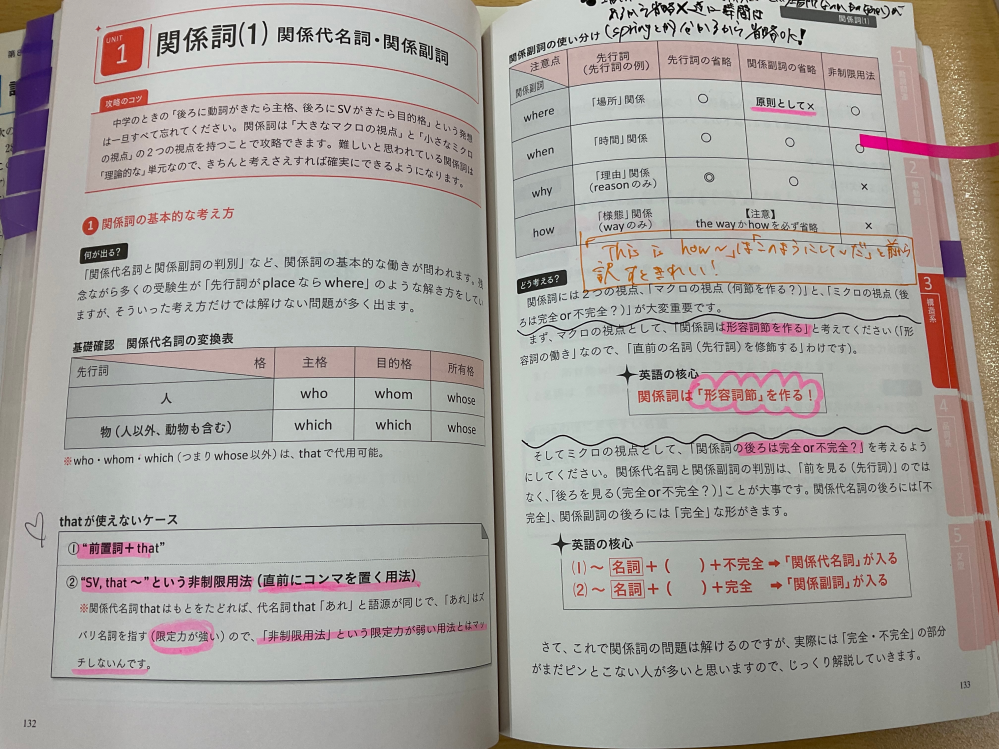 UNIT
1
関係詞(1) 関係代名詞・関係副詞
攻略のコツ
中学のときの「後ろに動詞がきたら主格、後ろにSVがきたら目的格」という発想
は一旦すべて忘れてください。関係詞は「大きなマクロの視点」と「小さなミクロ
の視点」の2つの視点を持つことで攻略できます。難しいと思われている関係詞は
「理論的な」単元なので、きちんと考えさえすれば確実にできるようになります。
1 関係詞の基本的な考え方
何が出る?
「関係代名詞と関係副詞の判別」など、関係詞の基本的な働きが問われます。残
念ながら多くの受験生が「先行詞がplaceならwhere」のような解き方をしてい
ますが、そういった考え方だけでは解けない問題が多く出ます。
基礎確認 関係代名詞の変換表
先行詞 格 主格 目的格 所有格
人 who whom whose
物(人以外、動物も含む) which which whose
※who・whom・which(つまりwhose以外)は、thatで代用可能。
thatが使えないケース
①“前置詞+that”
②“SV, that ~”という非制限用法(直前にコンマを置く用法)
※関係代名詞thatはもとをたどれば、代名詞that「あれ」と語源が同じで、「あれ」はズ
バリ名詞を指す(限定力が強い)ので、「非制限用法」という限定力が弱い用法とはマッ
チしないんです。
132
関係詞(1)
(springとか)なから省略OK!
関係副詞の使い分け
関係副詞 注意点 先行詞(先行詞の例) 先行詞の省略 関係副詞の省略 非制限用法
where 「場所」関係 ○ 原則として× ○
when 「時間」関係 ○ ○ ○
why 「理由」関係(reasonのみ) ◎ ○ ×
how 「様態」関係(wayのみ) 【注意】the wayかhowを必ず省略 ×
「This is how~」は「このようにして~だ」と前から
訳すときれい!
どう考える?
関係詞には2つの視点、「マクロの視点(何節を作る?)」と、「ミクロの視点(後
ろは完全or不完全?)」が大変重要です。
まず、マクロの視点として、「関係詞は形容詞節を作る」と考えてください(「形
容詞の働き」なので、「直前の名詞(先行詞)を修飾する」わけです)。
英語の核心
関係詞は「形容詞節」を作る!
そしてミクロの視点として、「関係詞の後ろは完全or不完全?」を考えるよう
にしてください。関係代名詞と関係副詞の判別は、「前を見る(先行詞)」のでは
なく、「後ろを見る(完全or不完全?)」ことが大事です。関係代名詞の後ろには「不
完全」、関係副詞の後ろには「完全」な形がきます。
英語の核心
(1)~ 名詞 +( )+不完全 ➡「関係代名詞」が入る
(2)~ 名詞 +( )+完全 ➡「関係副詞」が入る
さて、これで関係詞の問題は解けるのですが、実際には「完全・不完全」の部分
がまだピンとこない人が多いと思いますので、じっくり解説していきます。
133
1
2
3
構造系
4
5